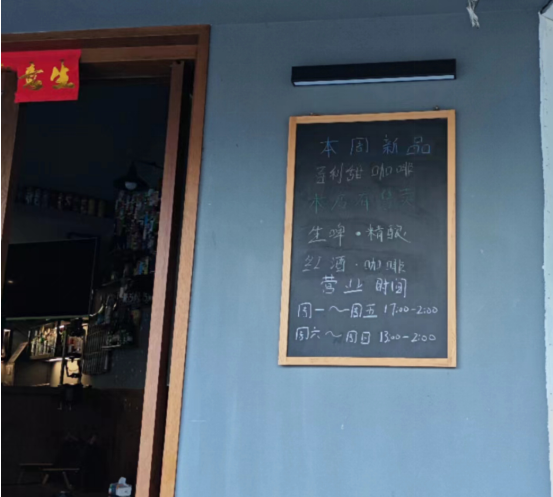 生意
本周新品
百利甜咖啡
生啤·精酿
红酒·咖啡
营业时间
周一~周五 17:00-2:00
周六~周日 13:00-2:00